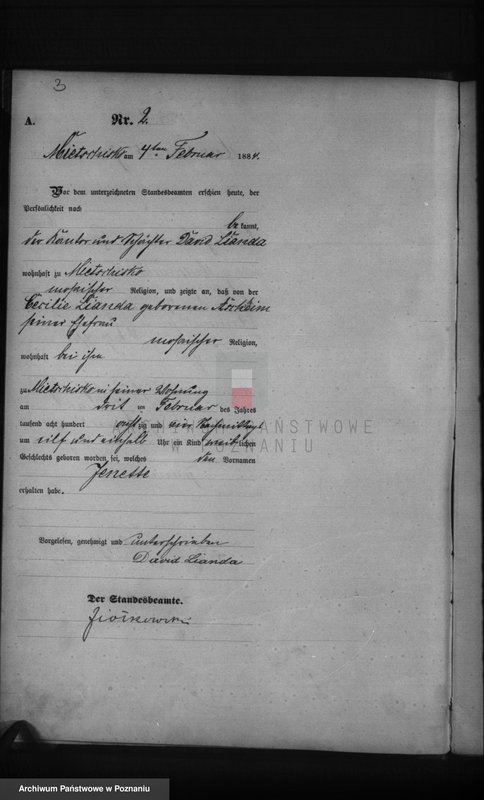 3
A. Nr. 2.
Mietschisko am 4ten Februar 1884.
Vor dem unterzeichneten Standesbeamten erschien heute, der
Persönlichkeit nach
bekannt,
der Kantor und Schächter David Lianda
wohnhaft zu Mietschisko
mosaischer Religion, und zeigte an, daß von der
Cecilie Lianda geborenen
seiner Ehefrau
mosaischer Religion,
wohnhaft bei ihm
zu Mietschisko in seiner Wohnung
am drit en Februar des Jahres
tausend acht hundert acht zig und vier Nachmittags
um eilf und einhalb Uhr ein Kind weiblichen
Geschlechts geboren worden sei, welches den Vornamen
Jenette
erhalten habe.
Vorgelesen, genehmigt und unterschrieben
David Lianda
Der Standesbeamte.
ARCHIWUM PAŃSTWOWE
W POZNANIU
Archiwum Państwowe w Poznaniu